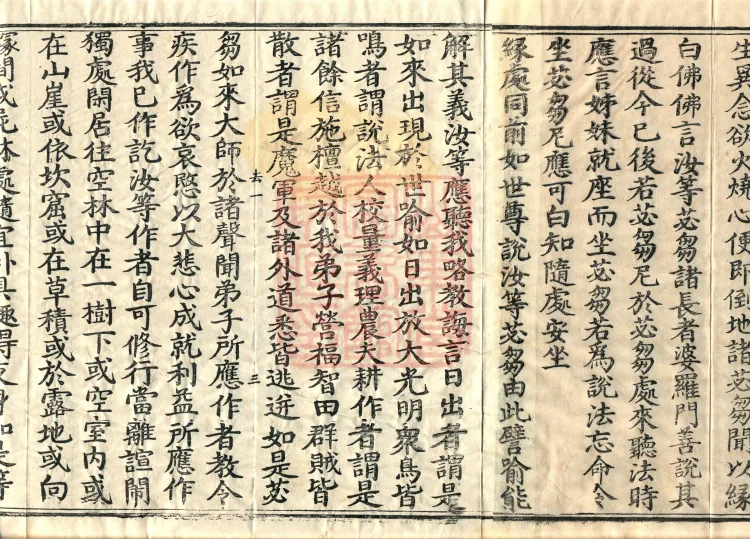 生異念欲火燒心便即倒地諸苾芻聞以緣
白佛佛言汝等苾芻諸長者婆羅門善說其
過從今已後若苾芻尼於苾芻處來聽法時
應言姊妹就座而坐苾芻若為說法忘命令
坐苾芻尼應可白知隨處安坐
緣處同前如世尊說汝等苾芻由此譬喻能
解其義汝等應聽我略教誨言日出者謂是
如來出現於世喻如日出放大光明衆鳥皆
鳴者謂說法人校量義理農夫耕作者謂是
諸餘信施檀越於我弟子營福智田群賊皆
散者謂是魔軍及諸外道悉皆逃迸如是苾
去一 三
芻如來大師於諸聲聞弟子所應作者教令
疾作為欲哀愍以大悲心成就利益所應作
事我已作訖汝等作者自可修行當離諠鬧
獨處閑居往空林中在一樹下或空室內或
在山崖或依坎窟或在草積或於露地或向